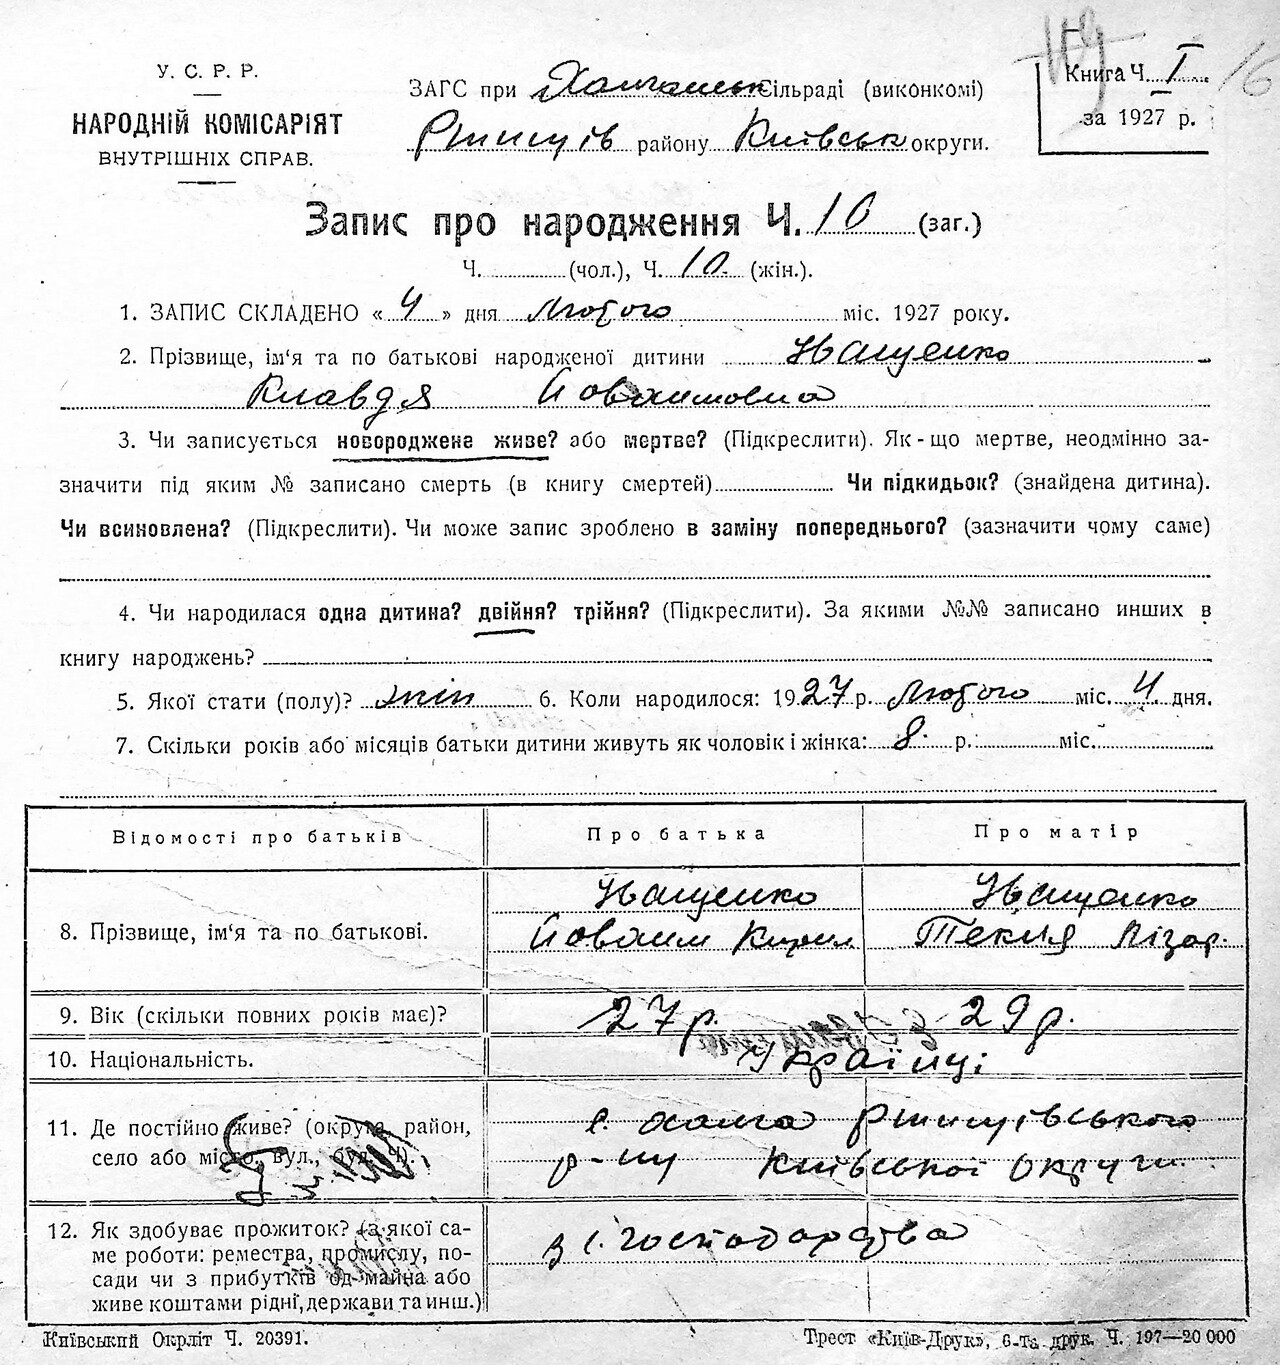 У. С. Р. Р.
НАРОДНІЙ КОМІСАРІЯТ
ВНУТРІШНІХ СПРАВ.
ЗАГС при Халчанськ сільраді (виконкомі)
Ржищів району Київськ округи.
Книга Ч. I
за 1927 р.
16
Запис про народження Ч. 10 (заг.)
Ч. (чол.), Ч. 10 (жін.).
1. ЗАПИС СКЛАДЕНО « 4 » дня Лютого міс. 1927 року.
2. Прізвище, ім'я та по батькові народженої дитини Іващенко
Клавдя Йовакимовна
3. Чи записується новороджене живе? або мертве? (Підкреслити). Як-що мертве, неодмінно за-
значити під яким № записано смерть (в книгу смертей) Чи підкидьок? (знайдена дитина).
Чи всиновлена? (Підкреслити). Чи може запис зроблено в заміну попереднього? (зазначити чому саме)
4. Чи народилася одна дитина? двійня? трійня? (Підкреслити). За якими №№ записано инших в
книгу народжень?
5. Якої стати (полу)? жін 6. Коли народилося: 1927 р. Лютого міс. 4 дня.
7. Скільки років або місяців батьки дитини живуть як чоловік і жінка: 8 р. міс.
Відомості про батьків Про батька Про матір
Іващенко Іващенко
8. Прізвище, ім'я та по батькові. Йоваким Кирил Текля Лізар.
9. Вік (скільки повних років має)? 27 р. 29 р.
10. Національність. Українці
11. Де постійно живе? (округа, район, с. Халча Ржищівського
село або місто, вул., буд. Ч). р-ну Київської округи
12. Як здобуває прожиток? (з якої са- з с. господарства
ме роботи: ремества, промислу, по-
сади чи з прибутків од майна або
живе коштами рідні, держави та инш.)
Київський Окрліт Ч. 20391.
Трест «Київ-Друк», 6-та друк. Ч. 197—20 000